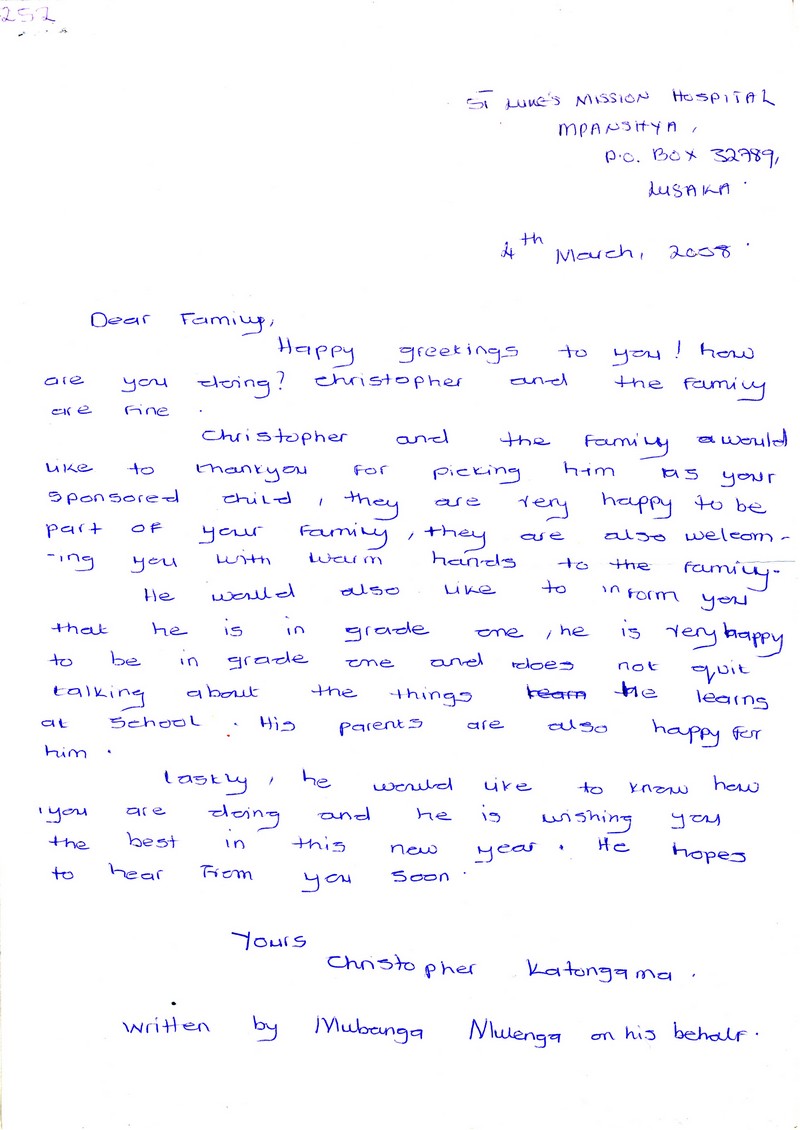 252
ST LUKE'S MISSION HOSPITAL
MPANSHYA,
P.O. BOX 32789,
LUSAKA.
4th March, 2008.
Dear Family,
Happy greetings to you! how
are you doing? Christopher and the family
are fine.
Christopher and the family would
like to thankyou for picking him as your
sponsored child, they are very happy to be
part of your family, they are also welcom-
-ing you with warm hands to the family.
He would also like to inform you
that he is in grade one, he is very happy
to be in grade one and does not quit
talking about the things learn he learns
at school. His parents are also happy for
him.
Lastly, he would like to know how
you are doing and he is wishing you
the best in this new year. He hopes
to hear from you soon.
Yours
Christopher Katongama.
Written by Mubanga Mulenga on his behalf.